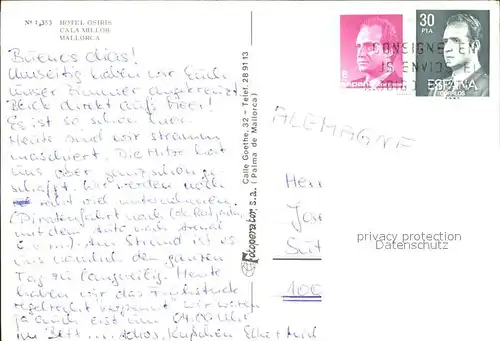 Nº 1.353 HOTEL OSIRIS
CALA MILLOR
MALLORCA
Buenos dias!
Umseitig haben wir Euch
unser Zimmer angekreuzt.
Blick direkt auf's Meer!
Es ist so schön hier.
Heute sind wir stramm
marschiert. Die Hitze hat
uns aber ganz schön ge-
schafft. Wir werden noch
viel unternehmen.
(Piratenfahrt nach Cala Ratjada,
mit dem Auto nach
Am Strand ist es
uns nämlich den ganzen
Tag zu langweilig. Heute
haben wir das Frühstück
regelrecht verpennt, wir waren
ja auch erst um 04.00 Uhr
im Bett... Adios, Küßchen Elke +
Fotoperator, s.a.
Calle Goethe, 32 - Tel. 28 91 13
(Palma de Mallorca)
8
ESPAÑA
30
PTA
ESPAÑA
CORREOS
CONSIGNE EN
US ENVIOS EL
ALEMAGNE
privacy protection
Datenschutz
Herr
100